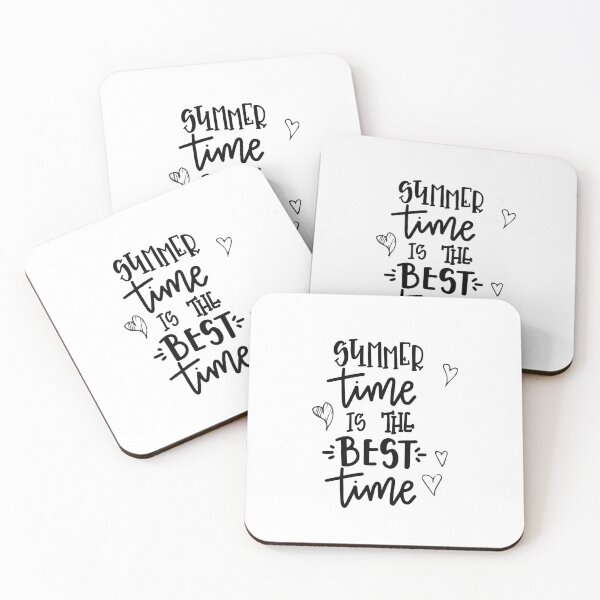 SUMMER
time
SUMMER
time
IS THE
BEST
SUMMER
time
IS THE
BEST
time
SUMMER
time
IS THE
BEST
time